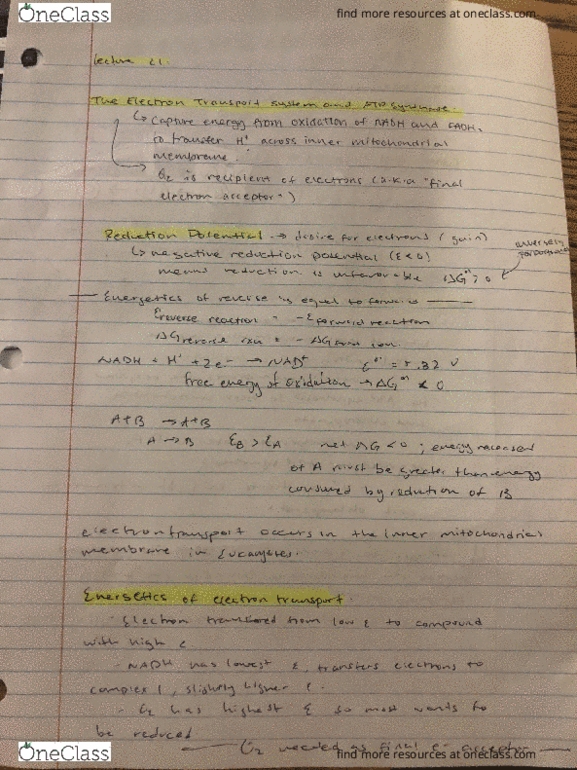 OneClass
find more resources at oneclass.com
lecture 21.
The Electron Transport System and ATP Synthase.
↳ capture energy from oxidation of NADH and FADH2
to transfer H+ across inner mitochondrial
membrane.
→ O2 is recipient of electrons (a.k.a "final
electron acceptor")
Reduction Potential → desire for electrons (gain)
↳ negative reduction potential (ε < 0)
means reduction is unfavorable ΔG°' > 0
inversely
proportional
Energetics of reverse is equal to forward
εreverse reaction = -εforward reaction
ΔG reverse rxn = -ΔG
NADH + H+ + 2e- → NAD+ ε°' = +.32 V
free energy of oxidation → ΔG°' < 0
A+B → A+B
A → B εB > εA net ΔG < 0 ; energy released
of A must be greater than energy
consumed by reduction of B
electron transport occurs in the inner mitochondrial
membrane in Eucaryotes.
Energetics of electron transport.
- Electron transferred from low ε to compound
with high ε
- NADH has lowest ε, transfers electrons to
complex 1, slightly higher ε.
- O2 has highest ε so most wants to
be reduced
O2 needed as final e- acceptor
OneClass
find more resources at oneclass.com